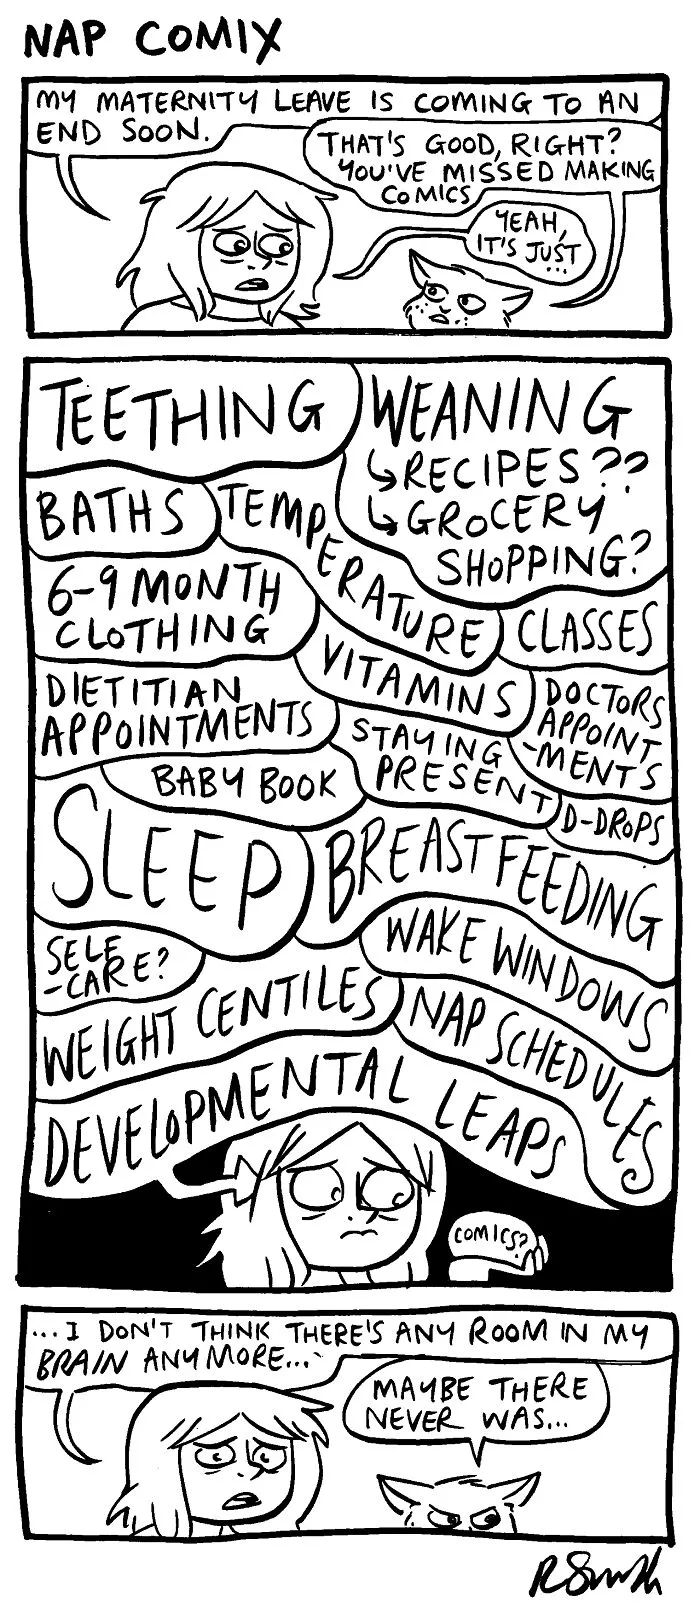 NAP COMIX
MY MATERNITY LEAVE IS COMING TO AN
END SOON.
THAT'S GOOD, RIGHT?
YOU'VE MISSED MAKING
COMICS
YEAH,
IT'S JUST
...
TEETHING
WEANING
↳RECIPES??
↳GROCERY
SHOPPING?
BATHS
TEMPERATURE
6-9 MONTH
CLOTHING
CLASSES
VITAMINS
DIETITIAN
APPOINTMENTS
DOCTORS
APPOINT
-MENTS
STAYING
PRESENT
BABY BOOK
D-DROPS
SLEEP
BREASTFEEDING
SELF
-CARE?
WAKE WINDOWS
WEIGHT CENTILES
NAP SCHEDULES
DEVELOPMENTAL LEAPS
COMICS?
...I DON'T THINK THERE'S ANY ROOM IN MY
BRAIN ANYMORE...
MAYBE THERE
NEVER WAS...